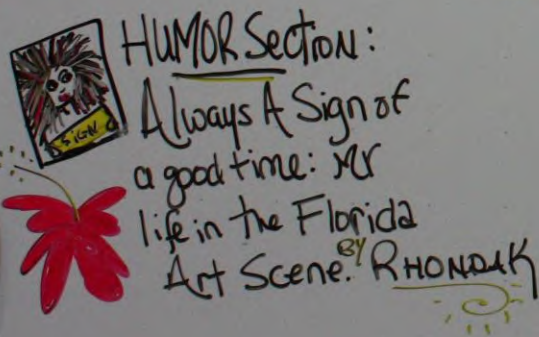 HUMOR Section:
SiGN
Always A Sign of
a good time: My
life in the Florida
Art Scene. BY RHONDAK